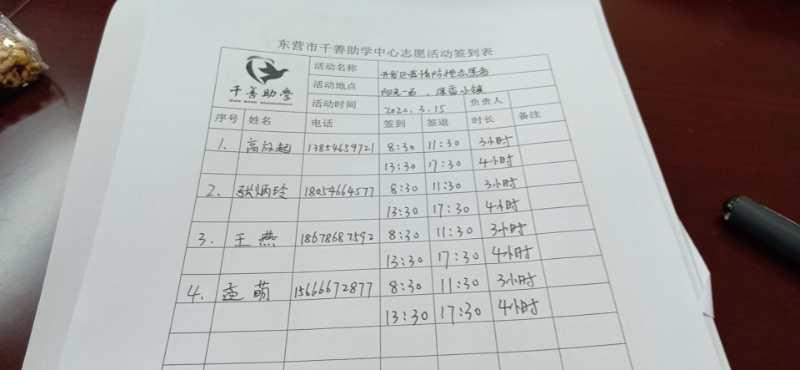 东营市千善助学中心志愿活动签到表
千善助学
活动名称 开发区疫情防控志愿者
活动地点 阳光一石
活动时间 2022.3.15 负责人
序号 姓名 电话 签到 签退 时长 备注
1. 高 13854659721 8:30 11:30 3小时
13:30 17:30 4小时
2. 张炳玲 18054664577 8:30 11:30 3小时
13:30 17:30 4小时
3. 王燕 18678687592 8:30 11:30 3小时
13:30 17:30 4小时
4. 孟萌 15666672877 8:30 11:30 3小时
13:30 17:30 4小时